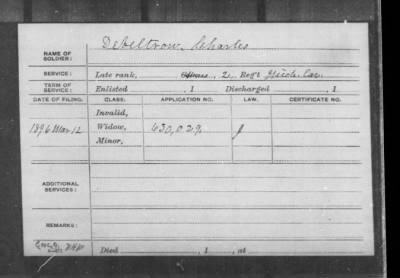 NAME OF SOLDIER: DeHeltrow, Charles
SERVICE: Late rank, 2, Reg't Mich. Cav.
TERM OF SERVICE: Enlisted , 1 Discharged , 1
DATE OF FILING. CLASS. APPLICATION NO. LAW. CERTIFICATE NO.
Invalid,
1896 Mar 12 Widow, 630,029
Minor,
ADDITIONAL SERVICES:
REMARKS:
Died , 1 , at